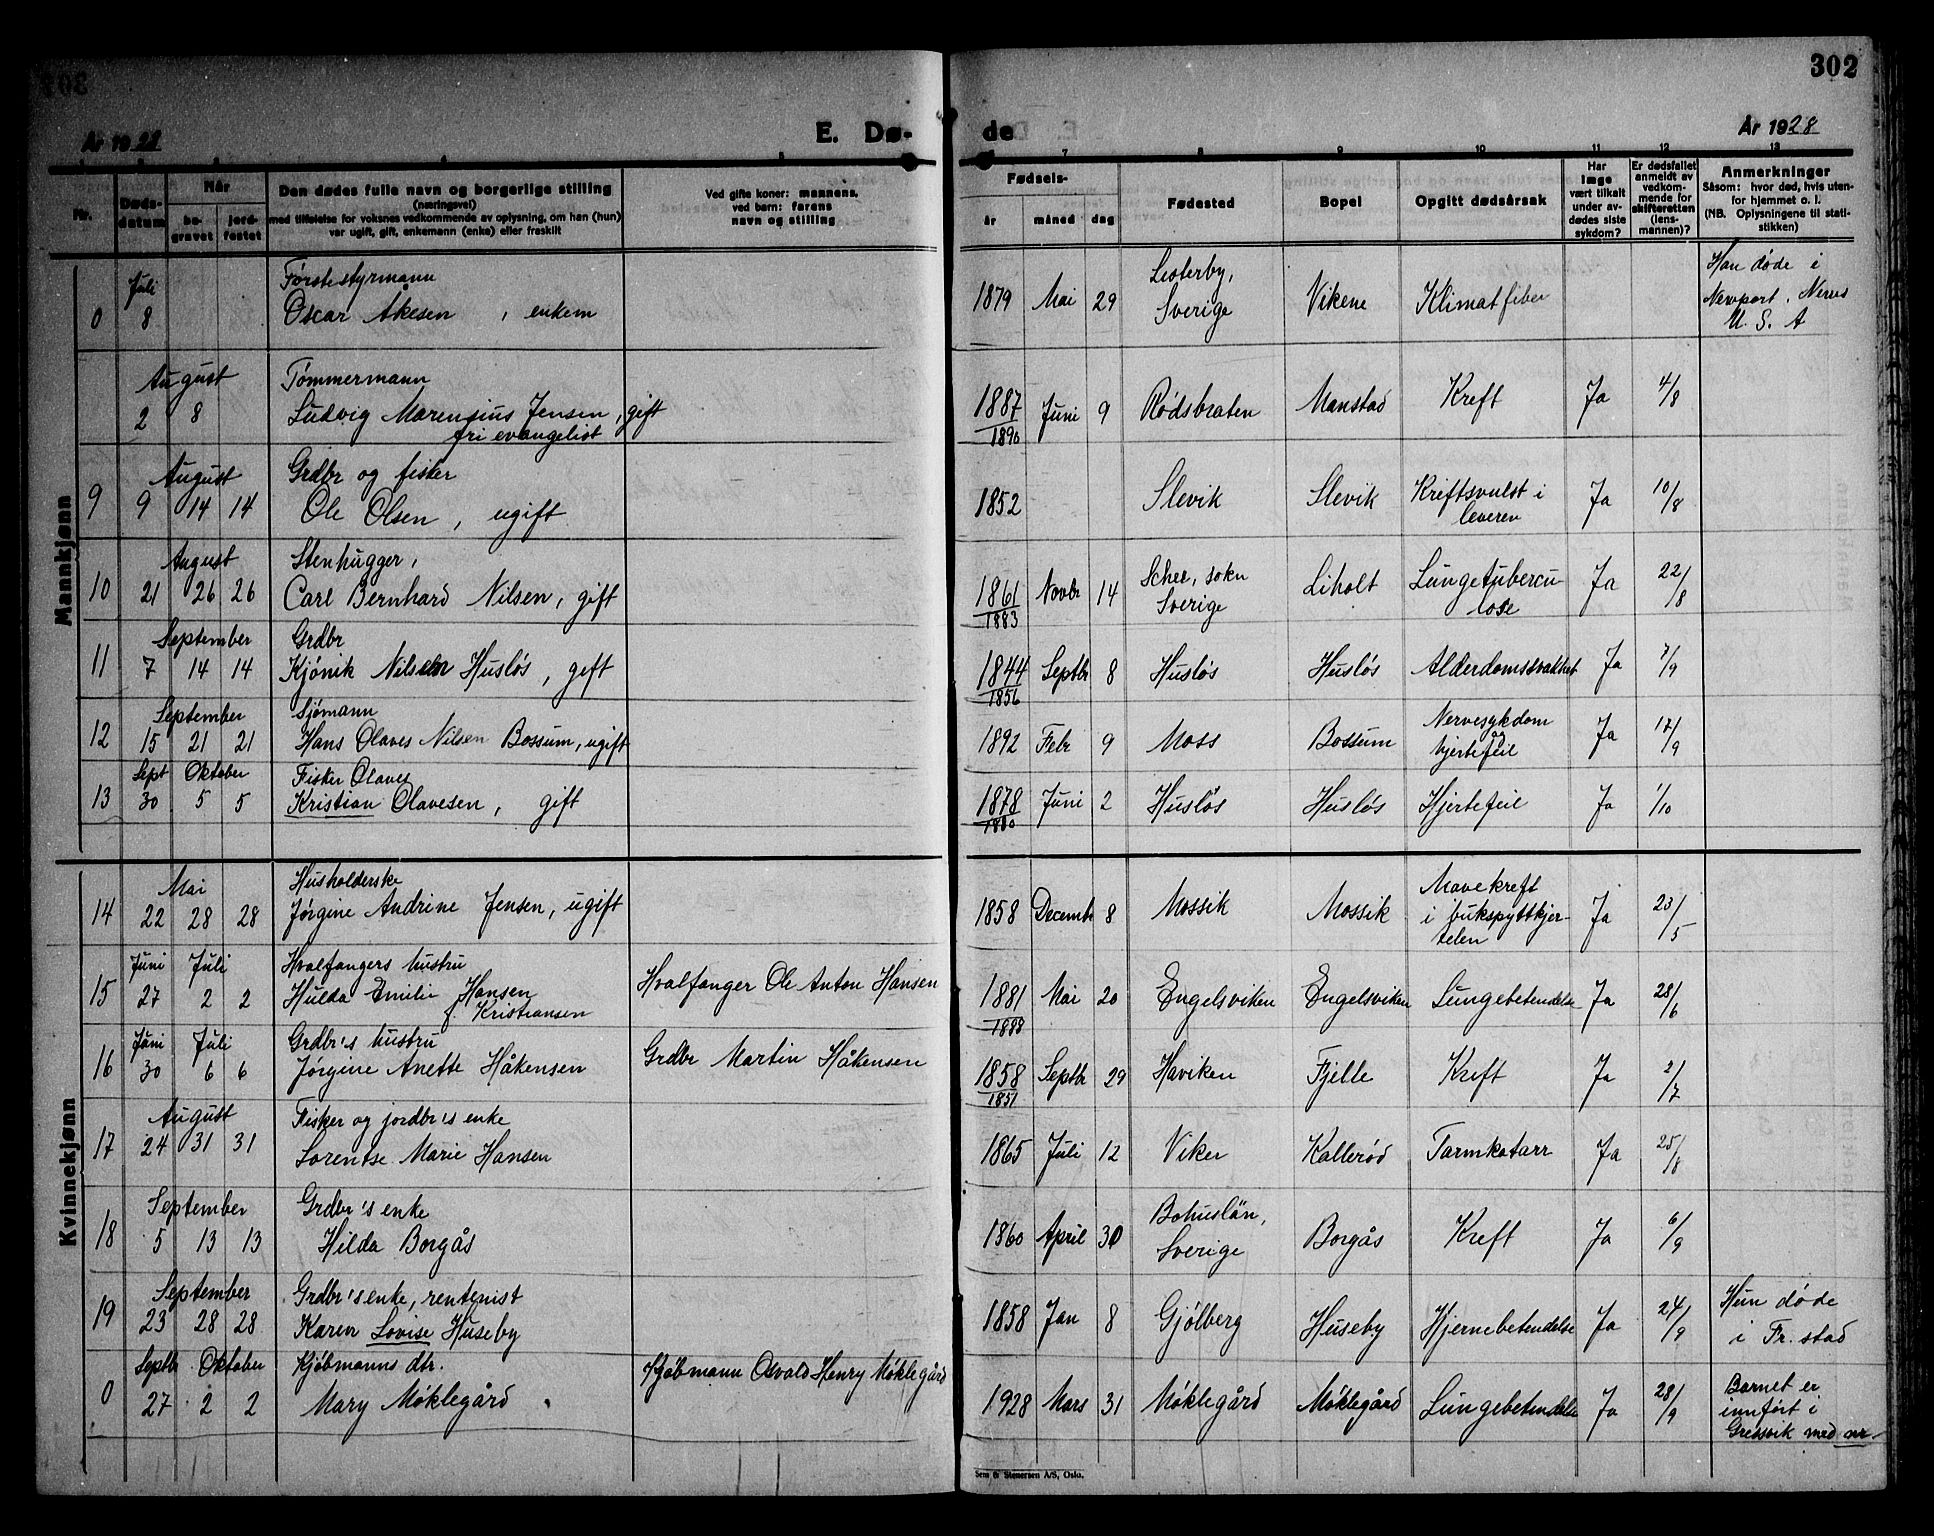 302
År 1928
E. Dø-
de
År 1928
7 8 9 10 11 12 13
Nr.
Døds-
datum
Når
be-
gravet
jord-
festet
Den dødes fulle navn og borgerlige stilling
(næringsvei)
med tilføielse for voksnes vedkommende av oplysning, om han (hun)
var ugift, gift, enkemann (enke) eller fraskilt
Ved gifte koner: mannens,
ved barn: farens
navn og stilling
Fødsels-
år måned dag
Fødested
Bopel
Opgitt dødsårsak
Har
læge
vært tilkalt
under av-
dødes siste
sykdom?
Er dødsfallet
anmeldt av
vedkom-
mende for
skifteretten
(lens-
mannen)?
Anmerkninger
Såsom: hvor død, hvis uten-
for hjemmet o. l.
(NB. Oplysningene til stati-
stikken)
Mannkjønn
Juli Førstestyrmann
0 8 Oscar Akesen, enkem
1879 Mai 29 Sverige Vikene Klimatfiber
Han døde i
Newport.
U. S. A
August Tømmermann
2 8 Ludvig Marensius Jensen, gift
fri evangelist
1887 Juni 9 Rødsbraten Manstad Kreft Ja 4/8
1890
August Grdbr og fisker
9 9 14 14 Ole Olsen, ugift
1852 Slevik Slevik Kreftsvulst i
leveren Ja 10/8
August Stenhugger,
10 21 26 26 Carl Bernhard Nilsen, gift
1861 Novbr 14 Schee, sokn
Sverige Liholt Lungetubercu
lose Ja 22/8
1883
September Grdbr
11 7 14 14 Kjönik Nilsen Husløs, gift
1844 Septbr 8 Husløs Husløs Alderdomssvakhet Ja 7/9
1856
September Sjömann
12 15 21 21 Hans Olaves Nilsen Bossum, ugift
1892 Febr 9 Moss Bossum Nervesykdom
og
hjertefeil Ja 17/9
Sept Oktober Fisker Olaves
13 30 5 5 Kristian Olavesen, gift
1878 Juni 2 Husløs Husløs Hjertefeil Ja 1/10
1880
Kvinnekjønn
Mai Husholderske
14 22 28 28 Jørgine Andrine Jensen, ugift
1858 Decembr 8 Mossik Mossik Mavekreft
i bukspyttkjer-
telen Ja 23/5
Juni Juli Hvalfangers hustru
15 27 2 2 Hulda Emilie Hansen
f. Kristiansen
Hvalfanger Ole Anton Hansen
1881 Mai 20 Engelsviken Engelsviken Lungebetendelse Ja 28/6
1888
Juni Juli Grdbr's hustru
16 30 6 6 Jørgine Anette Håkensen
Grdbr Martin Håkensen
1858 Septbr 29 Haviken Fjelle Kreft Ja 2/7
1851
August Fisker og jordbr's enke
17 24 31 31 Lorentse Marie Hansen
1865 Juli 12 Viker Kallerød Tarmkatarr Ja 25/8
September Grdbr's enke
18 5 13 13 Hilda Borgås
1860 April 30 Bohuslän,
Sverige Borgås Kreft Ja 6/9
September Grdbr's enke, rentenist
19 23 28 28 Karen Lovise Huseby
1858 Jan 8 Gjølberg Huseby Hjernebetendelse Ja 24/9
Hun døde
i Fr.stad
Septbr Oktober Kjøbmanns dtr.
0 27 2 2 Mary Møklegård
Kjøbmann Osvald Henry Møklegård
1928 Mars 31 Møklegård Møklegård Lungebetendelse Ja 28/9
Barnet er
innført i
Gressvik med nr.
Sem & Stenersen A/S, Oslo.